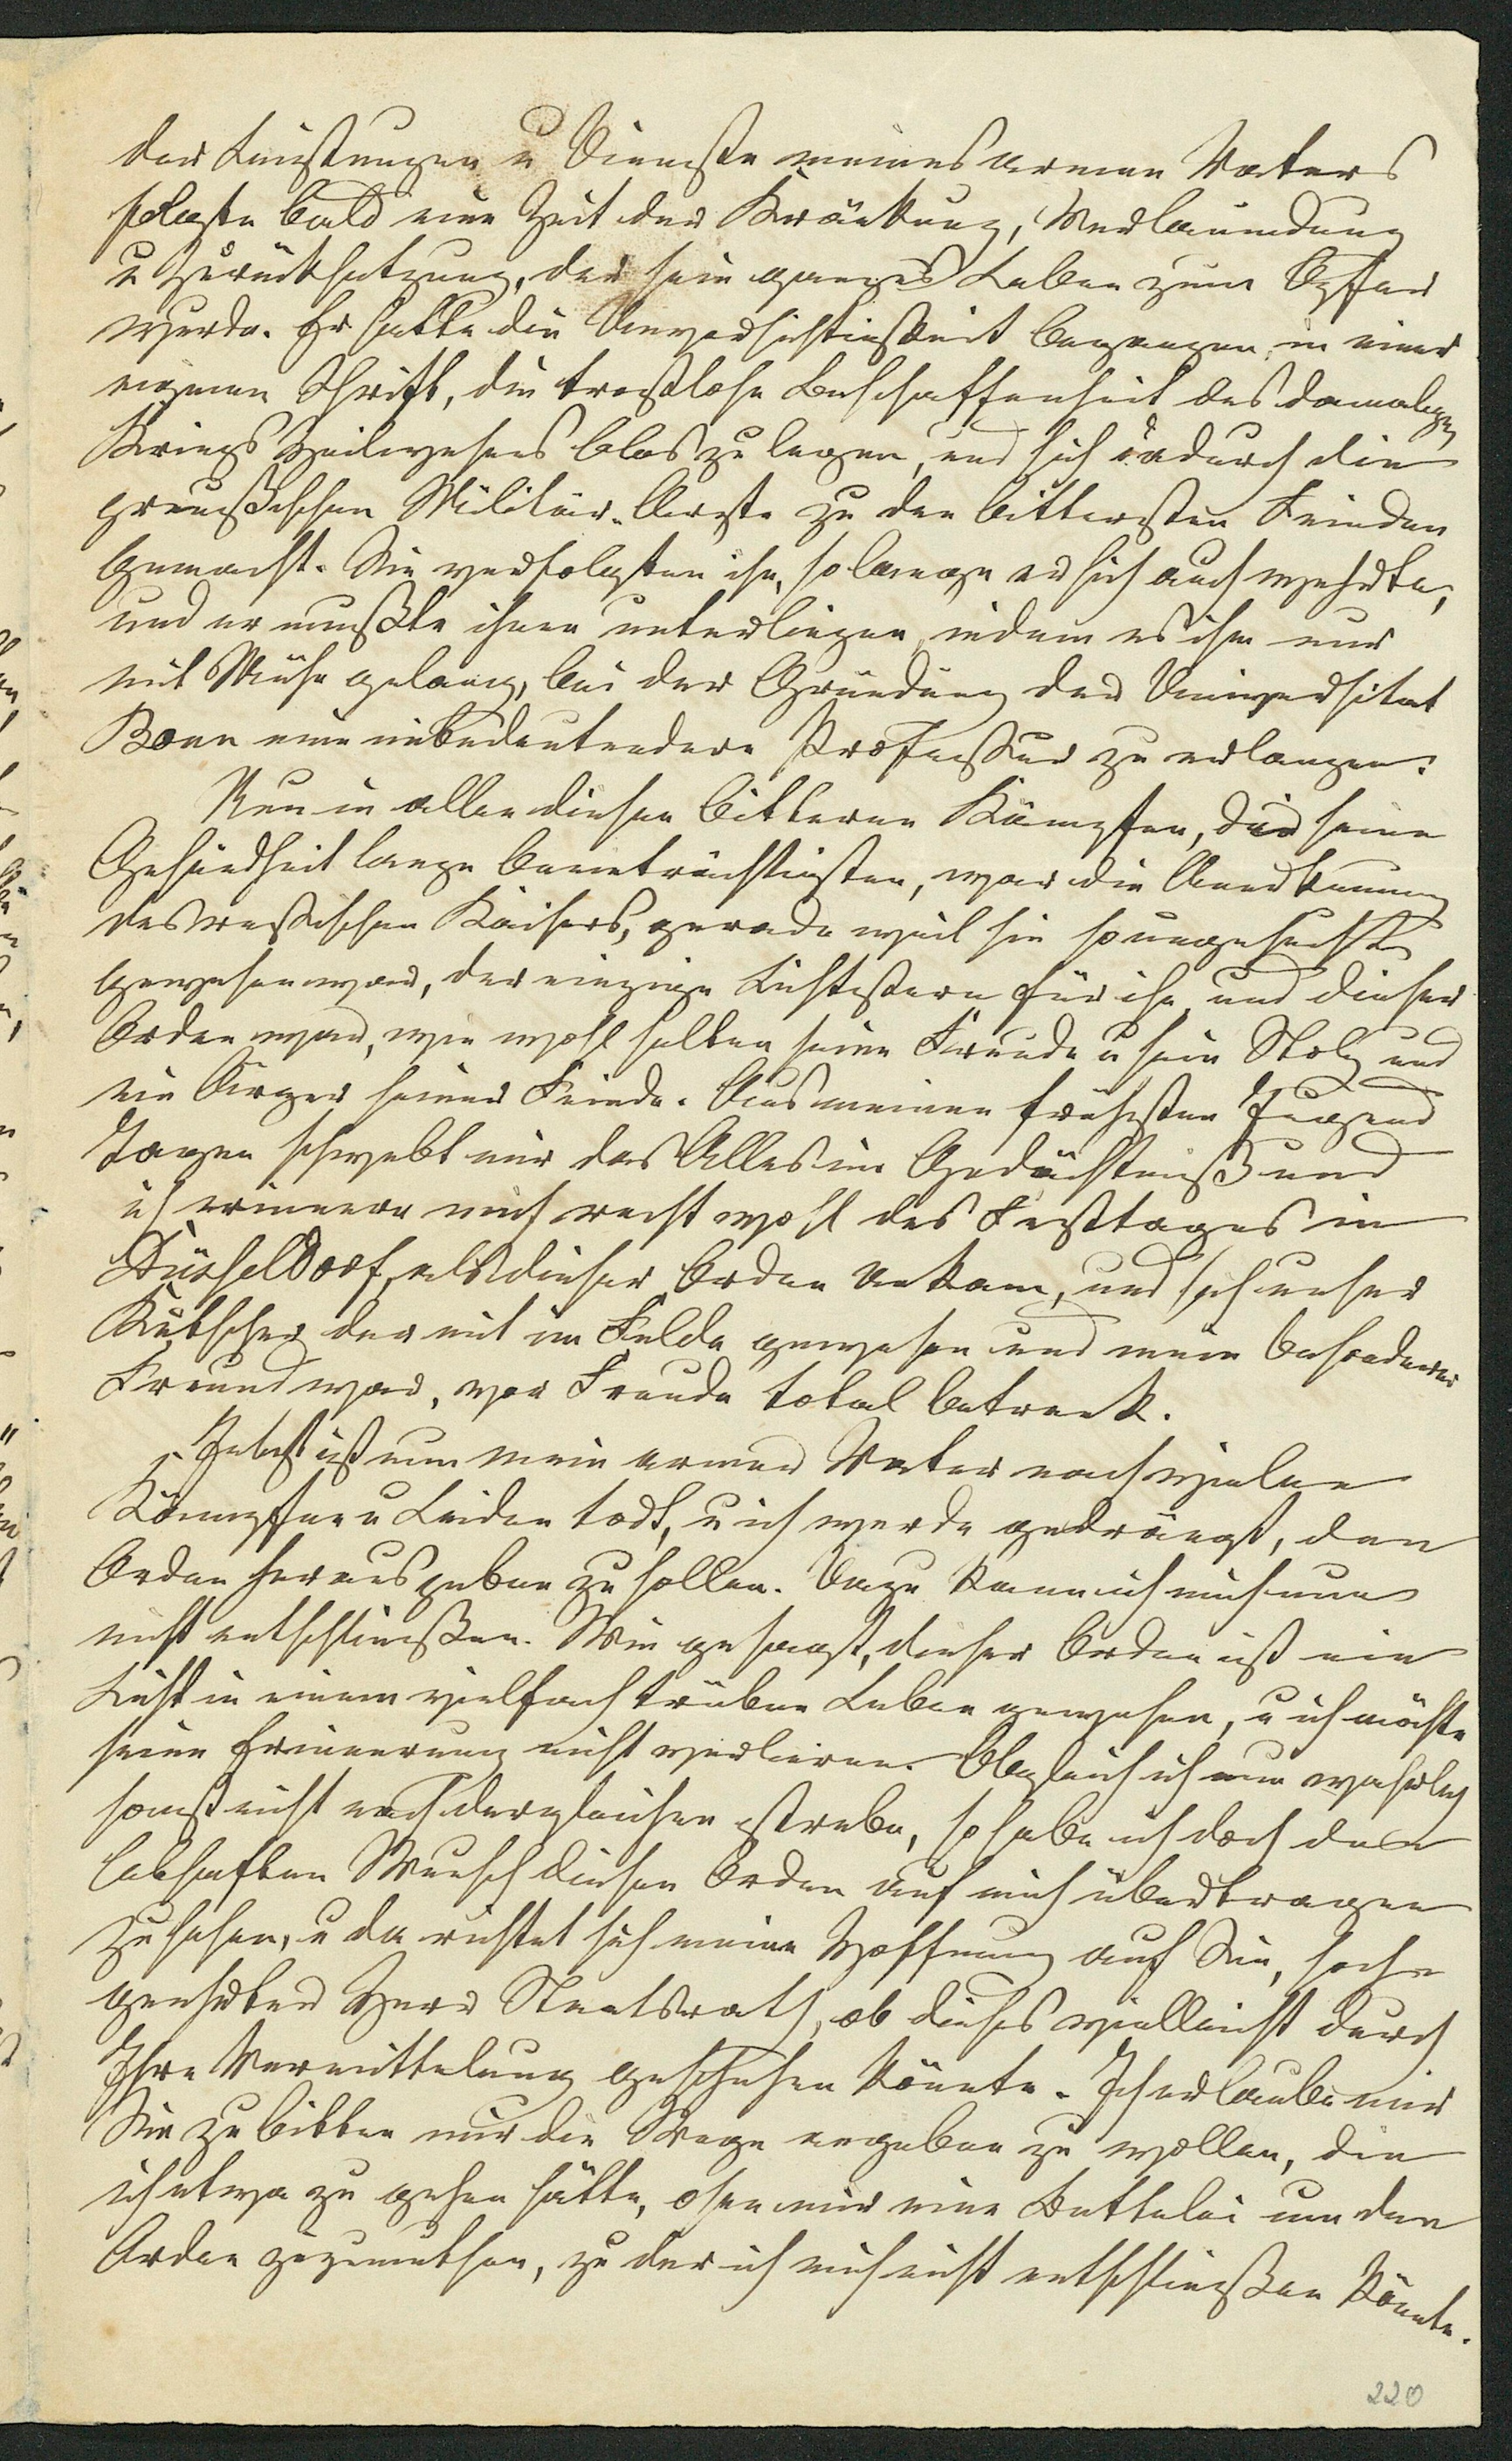 der Leistungen u Dienste meines armen Vaters
folgte bald eine Zeit der Kränkung, Verläumdung
u Zurücksetzung, der sein ganzes Leben zum Opfer
wurde. Er hatte die Unvorsichtigkeit begangen, in einer
eigenen Schrift, die trostlose Beschaffenheit des damaligen
Kriegs Heilwesens blos zu legen, und sich dadurch die
preußischen Militär-Aerzte zu den bittersten Feinden
gemacht. Sie verfolgten ihn, so lange er sich auch wehrte,
und er mußte ihnen unterliegen, indem es ihm nur
mit Mühe gelang, bei der Gründung der Universitat
Bonn eine unbedeutendere Professur zu erlangen.
Nun in allen diesen bitteren Kämpfen, die seine
Gesundheit lange beeinträchtigten, war die Anerkennung
des russischen Kaisers, gerade weil sie so ungesucht
gewesen war, der einzige Lichtstern für ihn und dieser
Orden war, wie wohl selten seine Freude u sein Stolz und
ein Ärger seiner Feinde. Aus meinen frühesten Jugend
Tagen schwebt mir das Alles im Gedächtniß und
ich erinnere mich recht wohl des Festtages in
Düsseldorf, als dieser Orden ankam, und sich unser
Kutscher der mit im Felde gewesen und mein besonderer
Freund war, vor Freude total betrank.
Jetzt ist nun mein armer Vater nach vielen
Kämpfen u Leiden todt, u ich werde gedrängt, den
Orden herausgeben zu sollen. Dazu kann ich mich nun
nicht entschließen. Wie gesagt, dieser Orden ist ein
Licht in einem vielfach trüben Leben gewesen, u ich möchte
seine Erinnerung nicht verlieren. Obgleich ich nun wahrlich
sonst nicht nach dergleichen strebe, so habe ich doch den
lebhaften Wunsch diesen Orden auf mich übertragen
zu sehen, u da richtet sich meine Hoffnung auf Sie, hoch
geehrter Herr Staatsrath, ob dieses vielleicht durch
Ihre Vermittelung geschehen könnte. Ich erlaube mir
Sie zu bitten mir die Wege angeben zu wollen, die
ich etwa zu gehen hätte, ohne mir eine Bettelei um den
Orden zuzumuthen, zu der ich mich nicht entschließen könnte.
220